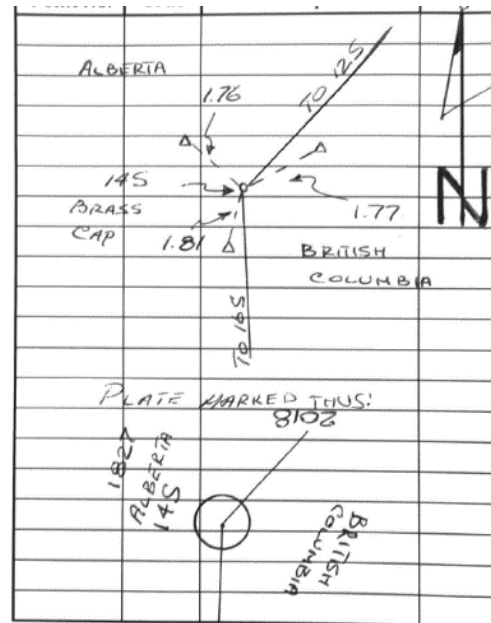 ALBERTA
1.76
TO 12S
14S
BRASS
CAP
1.77
1.81
BRITISH
COLUMBIA
TO 16S
N
PLATE MARKED THUS:
2018
1827
ALBERTA
14S
BRITISH
COLUMBIA